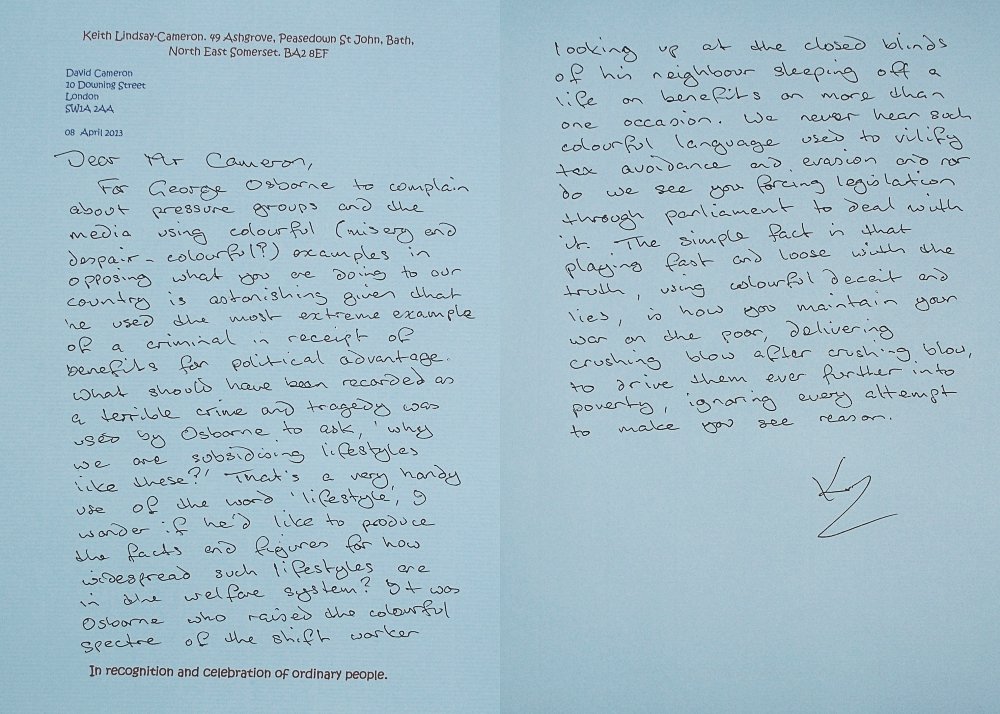 Keith Lindsay-Cameron. 49 Ashgrove, Peasedown St John, Bath,
North East Somerset. BA2 8EF
David Cameron
10 Downing Street
London
SW1A 2AA
08 April 2013
Dear Mr Cameron,
For George Osborne to complain
about pressure groups and the
media using colourful (misery and
despair - colourful?) examples in
opposing what you are doing to our
country is astonishing given that
he used the most extreme example
of a criminal in receipt of
benefits for political advantage.
What should have been recorded as
a terrible crime and tragedy was
used by Osborne to ask, 'why
we are subsidising lifestyles
like these?' That's a very handy
use of the word 'lifestyle, I
wonder if he'd like to produce
the facts and figures for how
widespread such lifestyles are
in the welfare system? It was
Osborne who raised the colourful
spectre of the shift worker
In recognition and celebration of ordinary people.
looking up at the closed blinds
of his neighbour sleeping off a
life on benefits on more than
one occasion. We never hear such
colourful language used to vilify
tax avoidance and evasion and nor
do we see you forcing legislation
through parliament to deal with
it. The simple fact is that
playing fast and loose with the
truth, using colourful deceit and
lies, is how you maintain your
war on the poor, delivering
crushing blow after crushing blow,
to drive them ever further into
poverty, ignoring every attempt
to make you see reason.